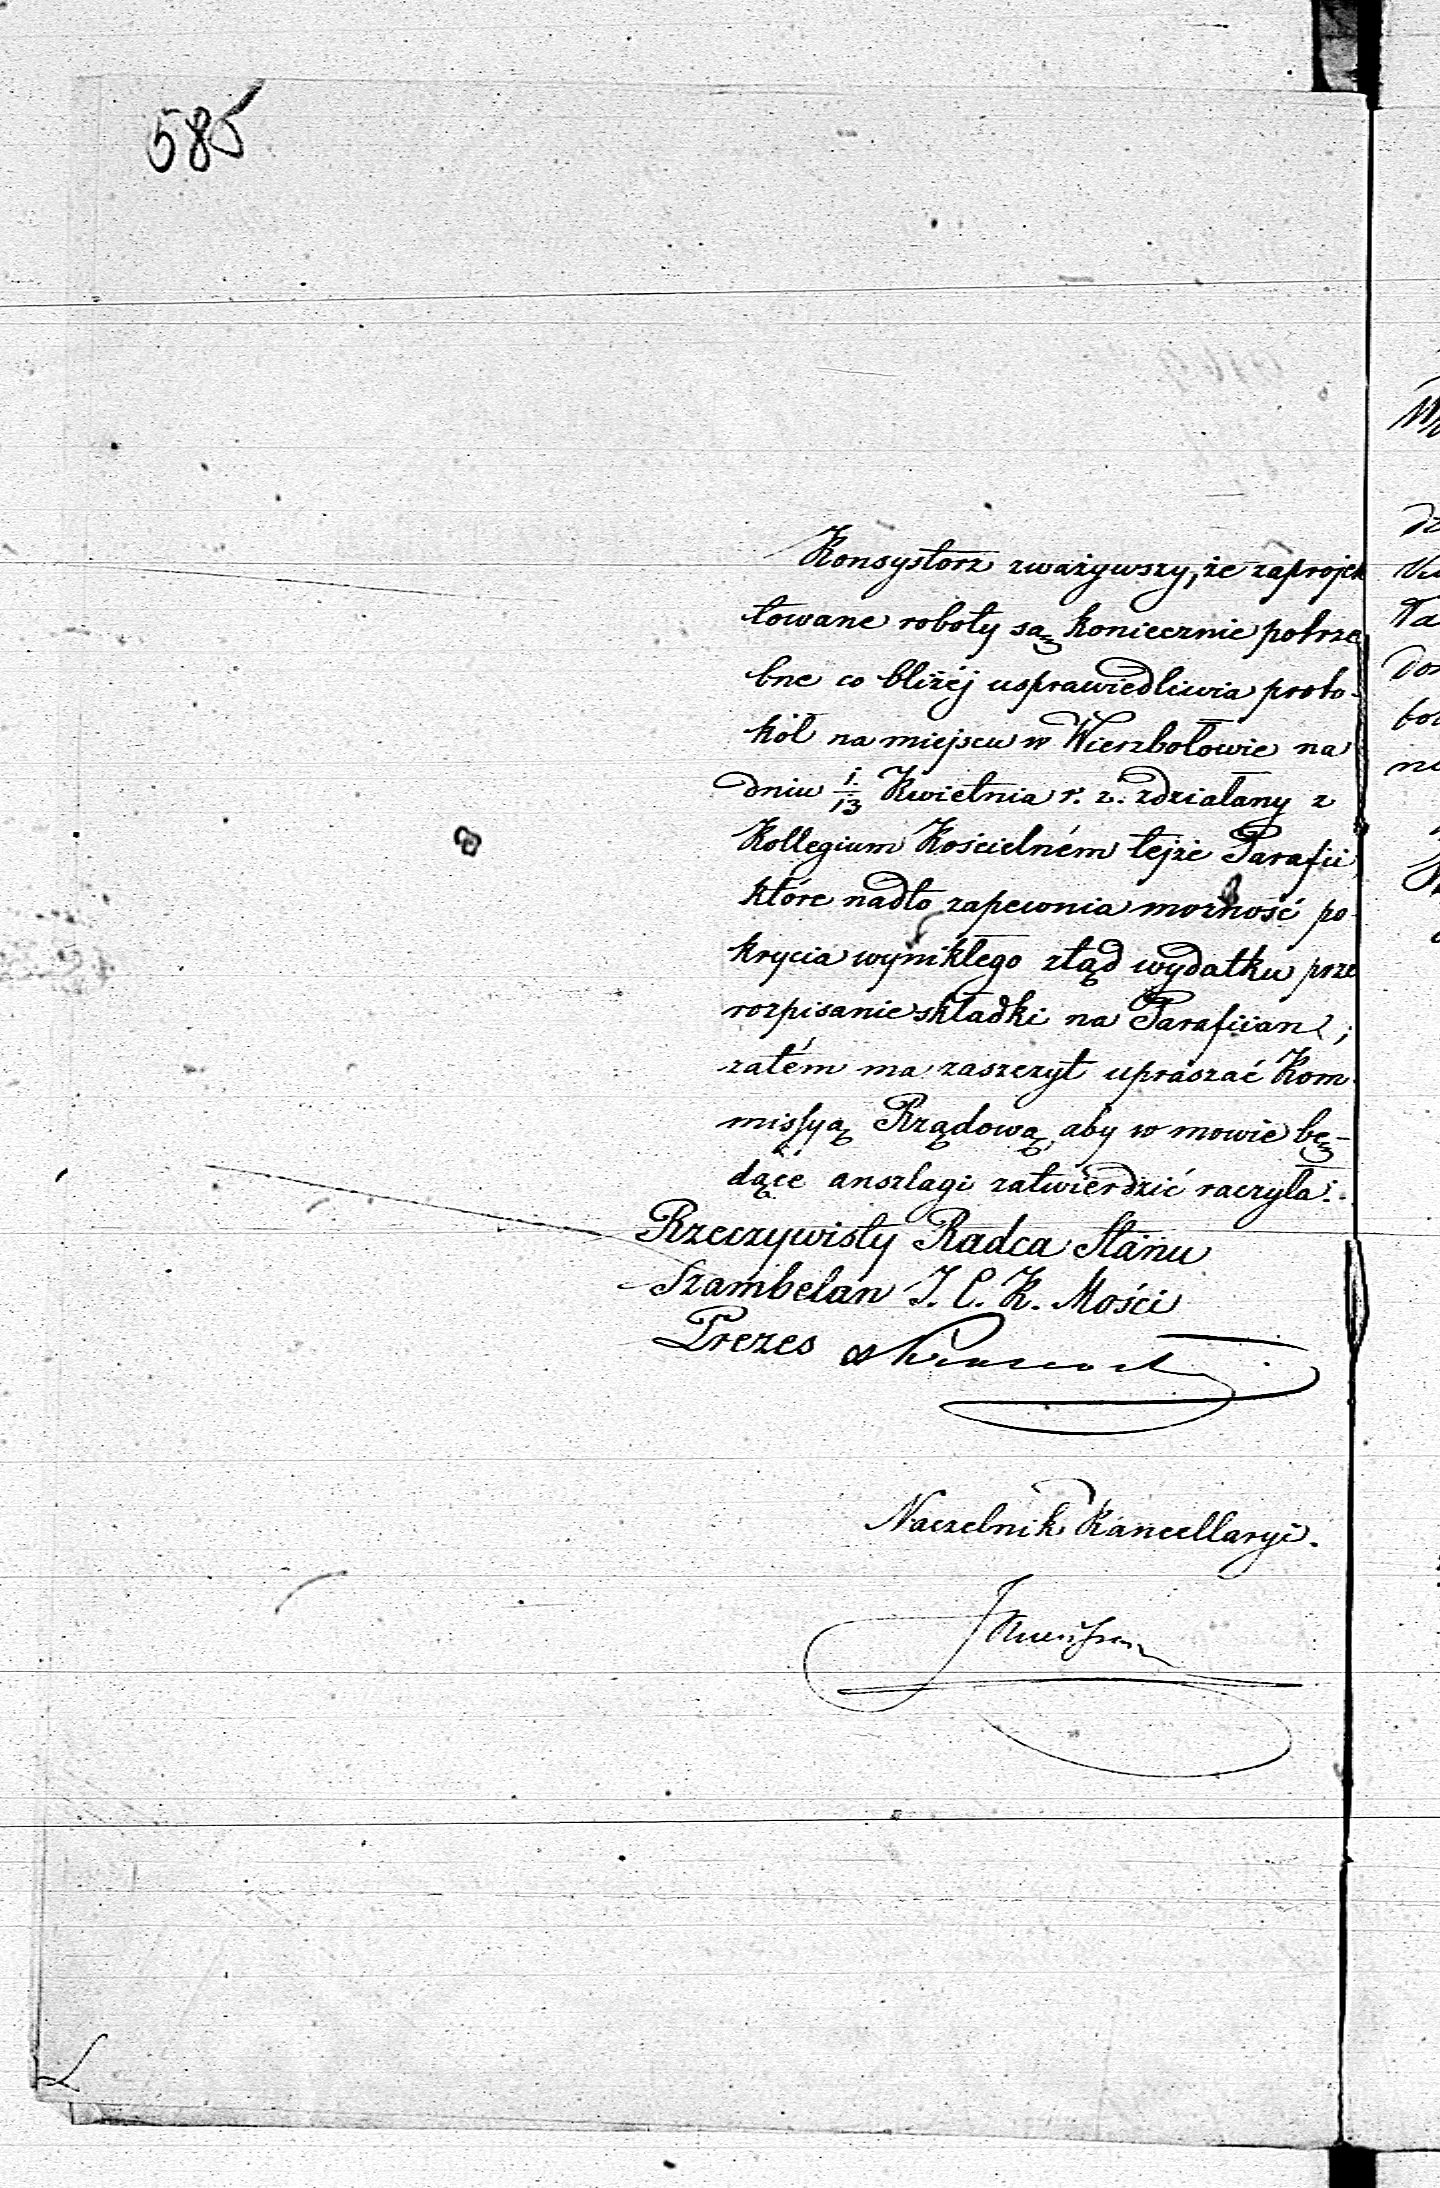 585
Konsystorz zważywszy, że zaprojek
towane roboty są koniecznie potrze
bne co bliżéj usprawiedliwia proto-
kół na miejscu w Wierzbołowie na
dniu 1/13 Kwietnia r. z. zdziałany z
Kollegium Kościelném tejże Parafii
które nadto zapewnia możność po-
krycia wynikłego ztąd wydatku prze
rozpisanie składki na Parafiian;
zatém ma zaszczyt upraszać Kom-
missyą Rządową, aby w mowie bę-
dące anszlagi zatwierdzić raczyła.
Rzeczywisty Radca Stanu
Szambelan J. C. K. Mości
Prezes
Naczelnik Kancellaryi.